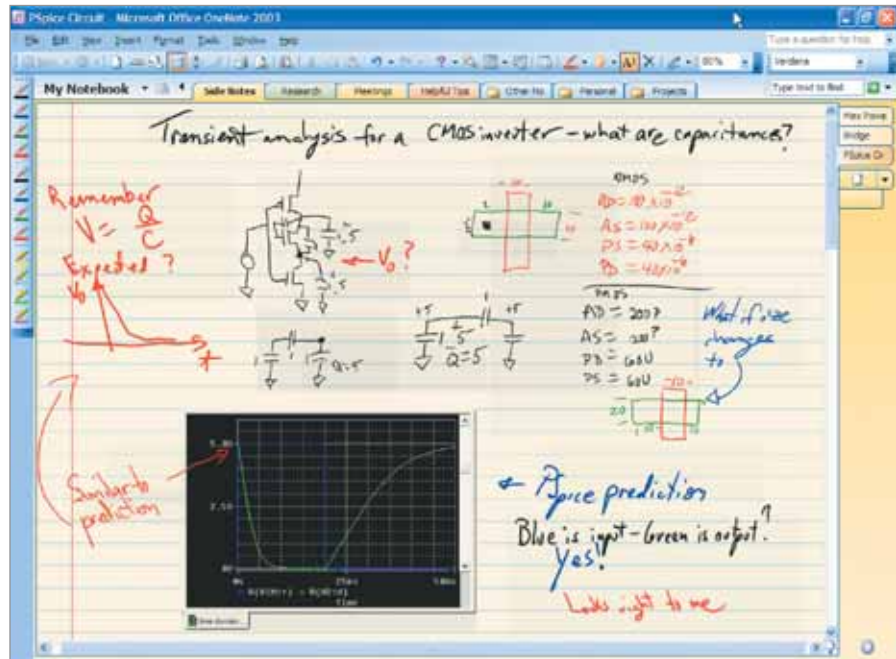 PSpice Circuit - Microsoft Office OneNote 2003
File Edit View Insert Format Tools Window Help
Type a question for help
80%
Verdana
My Notebook
Side Notes Research Meetings Helpful Tips Other No Personal Projects
Type text to find
Max Powe
Bridge
PSpice Ci
Transient analysis for a CMOS inverter - what are capacitances?
Remember
V = Q/C
Expected?
Vo
t
Vo?
Q=5
+5 +5
Q=5
AS = 100 x 10
PS = 40 x 10
PD = 40 x 10
AD = 200P
AS = 200P
PD = 60U
PS = 60U
What if size
changes
to
20
Similar to
prediction
5.00
2.50
0s 25ns 50ns
Time
PSpice prediction
Blue is input - Green is output?
Yes!
Looks right to me